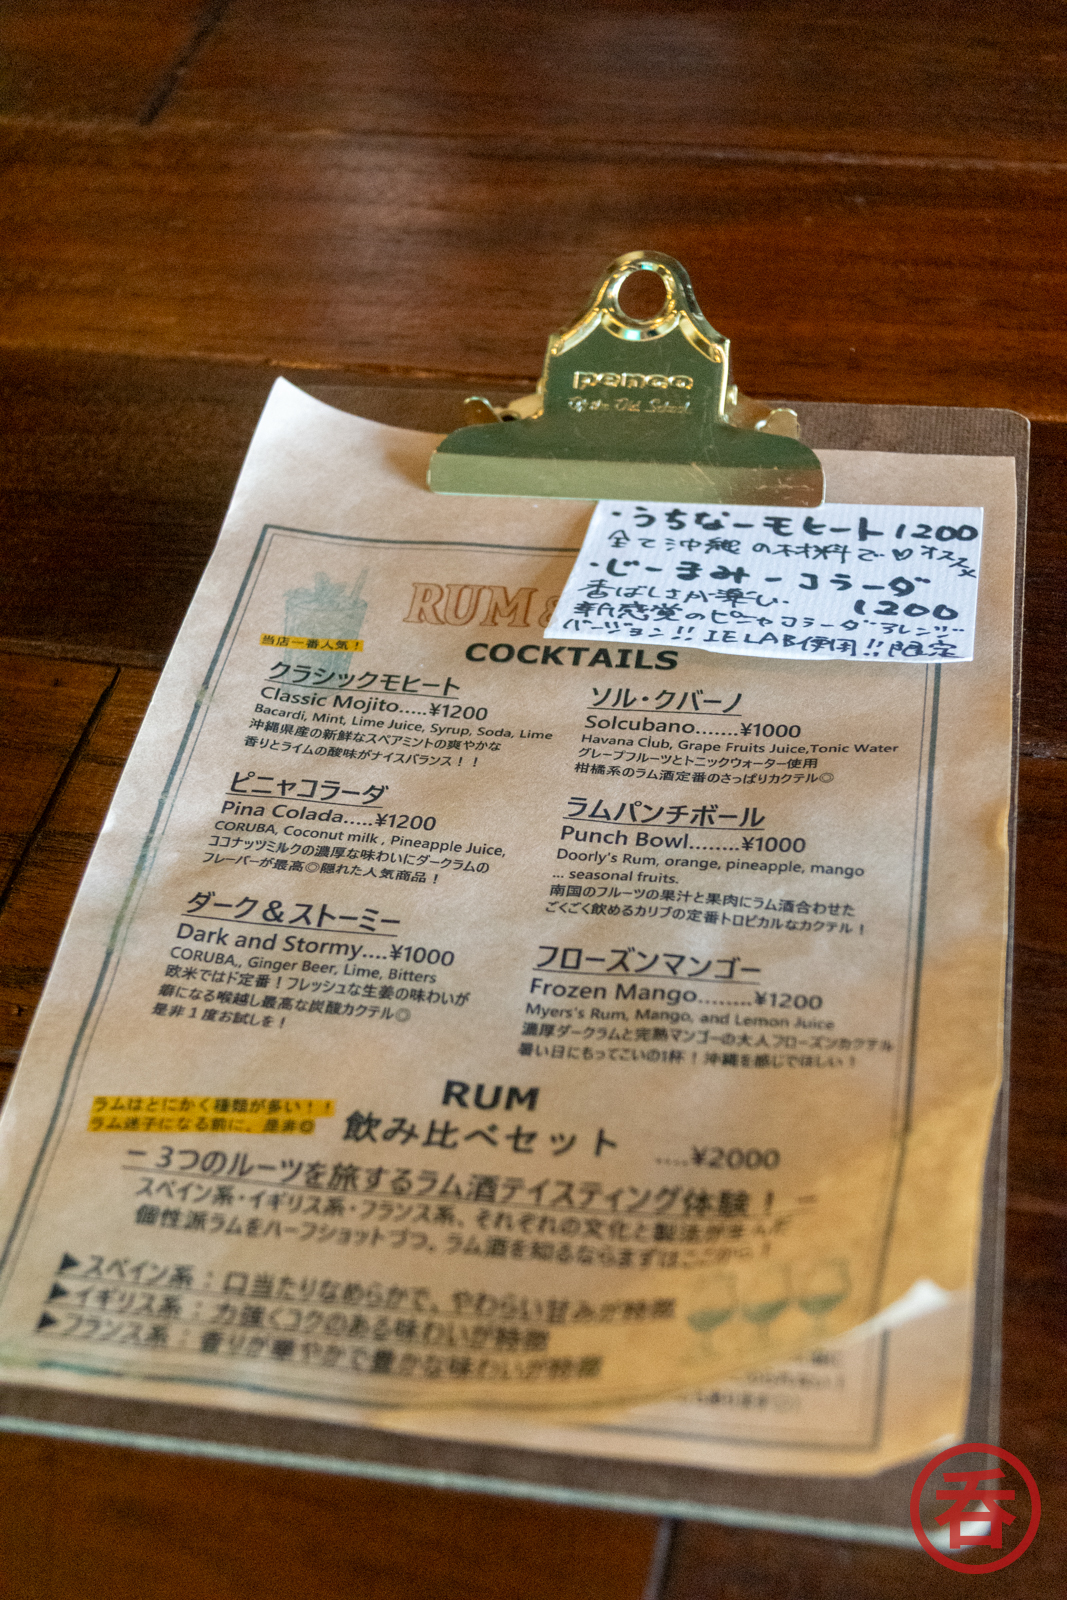 penco
・うちなーモヒート 1200
全て沖縄の材料で♡オススメ
・じーまみーコラーダ
香ばしさが楽しい 1200
新感覚のピニャコラーダアレンジ
バージョン!! IELAB使用!! 限定
RUM &
COCKTAILS
当店一番人気！
クラシックモヒート
Classic Mojito.....¥1200
Bacardi, Mint, Lime Juice, Syrup, Soda, Lime
沖縄県産の新鮮なスペアミントの爽やかな
香りとライムの酸味がナイスバランス！！
ピニャコラーダ
Pina Colada.....¥1200
CORUBA, Coconut milk , Pineapple Juice,
ココナッツミルクの濃厚な味わいにダークラムの
フレーバーが最高◎隠れた人気商品！
ダーク＆ストーミー
Dark and Stormy....¥1000
CORUBA,, Ginger Beer, Lime, Bitters
欧米ではド定番！フレッシュな生姜の味わいが
癖になる喉越し最高な炭酸カクテル◎
是非１度お試しを！
ソル・クバーノ
Solcubano.......¥1000
Havana Club, Grape Fruits Juice,Tonic Water
グレープフルーツとトニックウォーター使用
柑橘系のラム酒定番のさっぱりカクテル◎
ラムパンチボール
Punch Bowl........¥1000
Doorly's Rum, orange, pineapple, mango
... seasonal fruits.
南国のフルーツの果汁と果肉にラム酒合わせた
ごくごく飲めるカリブの定番トロピカルなカクテル！
フローズンマンゴー
Frozen Mango.........¥1200
Myers's Rum, Mango, and Lemon Juice
濃厚ダークラムと完熟マンゴーの大人フローズンカクテル
暑い日にもってこいの1杯！沖縄を感じてほしい！
RUM
ラムはとにかく種類が多い！！
ラム迷子になる前に、是非◎
飲み比べセット ....¥2000
− 3つのルーツを旅するラム酒テイスティング体験！ −
スペイン系・イギリス系・フランス系、それぞれの文化と製法が生んだ
個性派ラムをハーフショットづつ。ラム酒を知るならまずはここから！
▶スペイン系：口当たりなめらかで、やわらい甘みが特徴
▶イギリス系：力強くコクのある味わいが特徴
▶フランス系：香りが華やかで豊かな味わいが特徴
呑